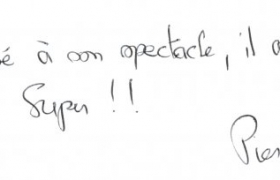 é à son spectacle, il a
Super !!
Pier